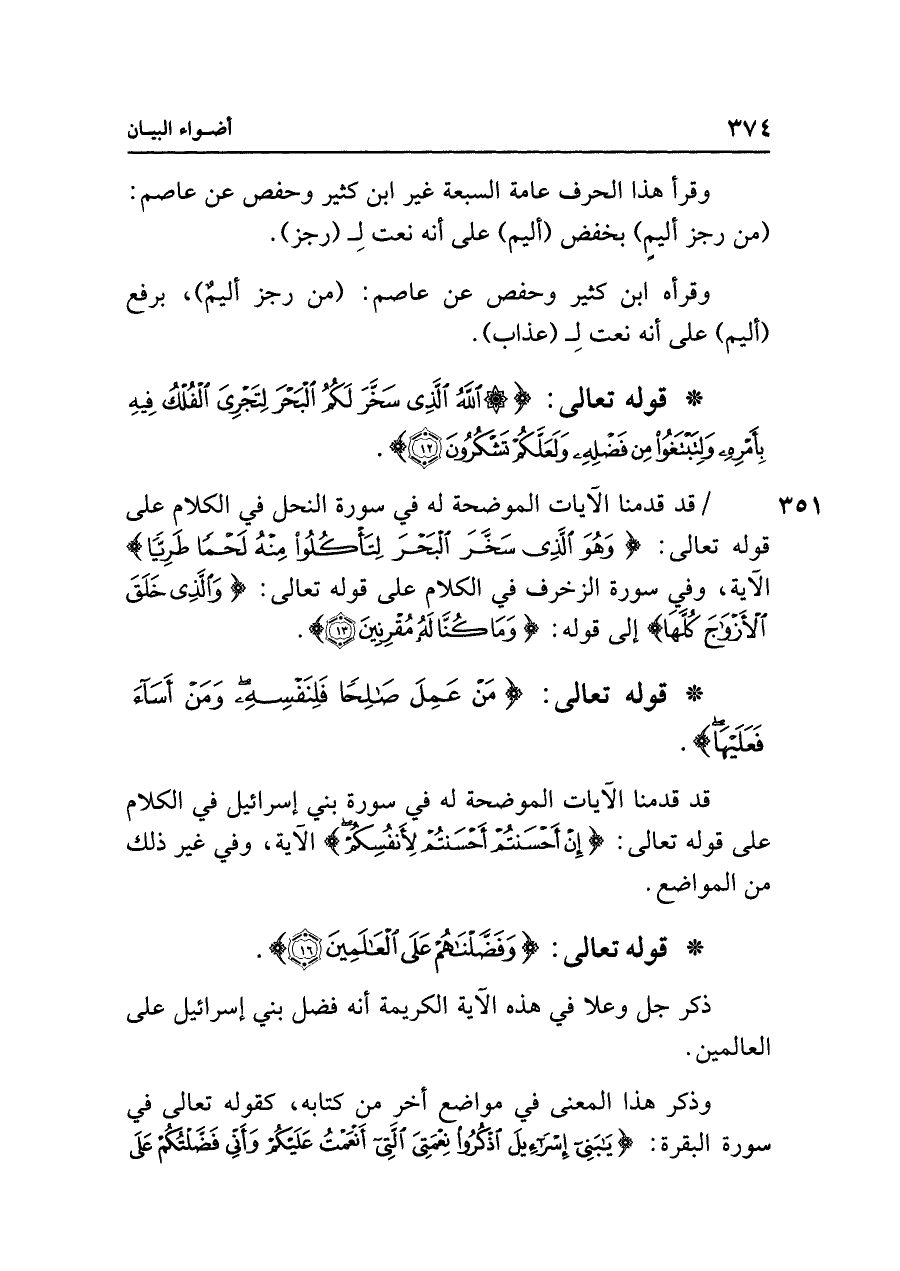 ٣٧٤ أضواء البيان
وقرأ هذا الحرف عامة السبعة غير ابن كثير وحفص عن عاصم:
(من رجز أليمٍ) بخفض (أليم) على أنه نعت لِـ (رجز).
وقرأه ابن كثير وحفص عن عاصم: (من رجز أليمٌ)، برفع
(أليم) على أنه نعت لِـ (عذاب).
* قوله تعالى: ﴿ ۞ ٱللَّهُ ٱلَّذِى سَخَّرَ لَكُمُ ٱلْبَحْرَ لِتَجْرِىَ ٱلْفُلْكُ فِيهِ
بِأَمْرِهِۦ وَلِتَبْتَغُوا۟ مِن فَضْلِهِۦ وَلَعَلَّكُمْ تَشْكُرُونَ ١٢﴾.
٣٥١ / قد قدمنا الآيات الموضحة له في سورة النحل في الكلام على
قوله تعالى: ﴿ وَهُوَ ٱلَّذِى سَخَّرَ ٱلْبَحْرَ لِتَأْكُلُوا۟ مِنْهُ لَحْمًا طَرِيًّا﴾
الآية، وفي سورة الزخرف في الكلام على قوله تعالى: ﴿ وَٱلَّذِى خَلَقَ
ٱلْأَزْوَٰجَ كُلَّهَا﴾ إلى قوله: ﴿ وَمَا كُنَّا لَهُۥ مُقْرِنِينَ ١٣﴾.
* قوله تعالى: ﴿ مَنْ عَمِلَ صَٰلِحًا فَلِنَفْسِهِۦۖ وَمَنْ أَسَآءَ
فَعَلَيْهَاۖ﴾.
قد قدمنا الآيات الموضحة له في سورة بني إسرائيل في الكلام
على قوله تعالى: ﴿ إِنْ أَحْسَنتُمْ أَحْسَنتُمْ لِأَنفُسِكُمْۖ﴾ الآية، وفي غير ذلك
من المواضع.
* قوله تعالى: ﴿ وَفَضَّلْنَٰهُمْ عَلَى ٱلْعَٰلَمِينَ ١٦﴾.
ذكر جل وعلا في هذه الآية الكريمة أنه فضل بني إسرائيل على
العالمين.
وذكر هذا المعنى في مواضع أخر من كتابه، كقوله تعالى في
سورة البقرة: ﴿ يَٰبَنِىٓ إِسْرَٰٓءِيلَ ٱذْكُرُوا۟ نِعْمَتِىَ ٱلَّتِىٓ أَنْعَمْتُ عَلَيْكُمْ وَأَنِّى فَضَّلْتُكُمْ عَلَى